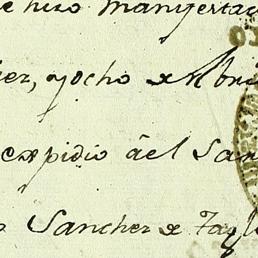 e hizo manifestac
iez, y ocho de Abri
expidio àel San
Sanchez de Tagl